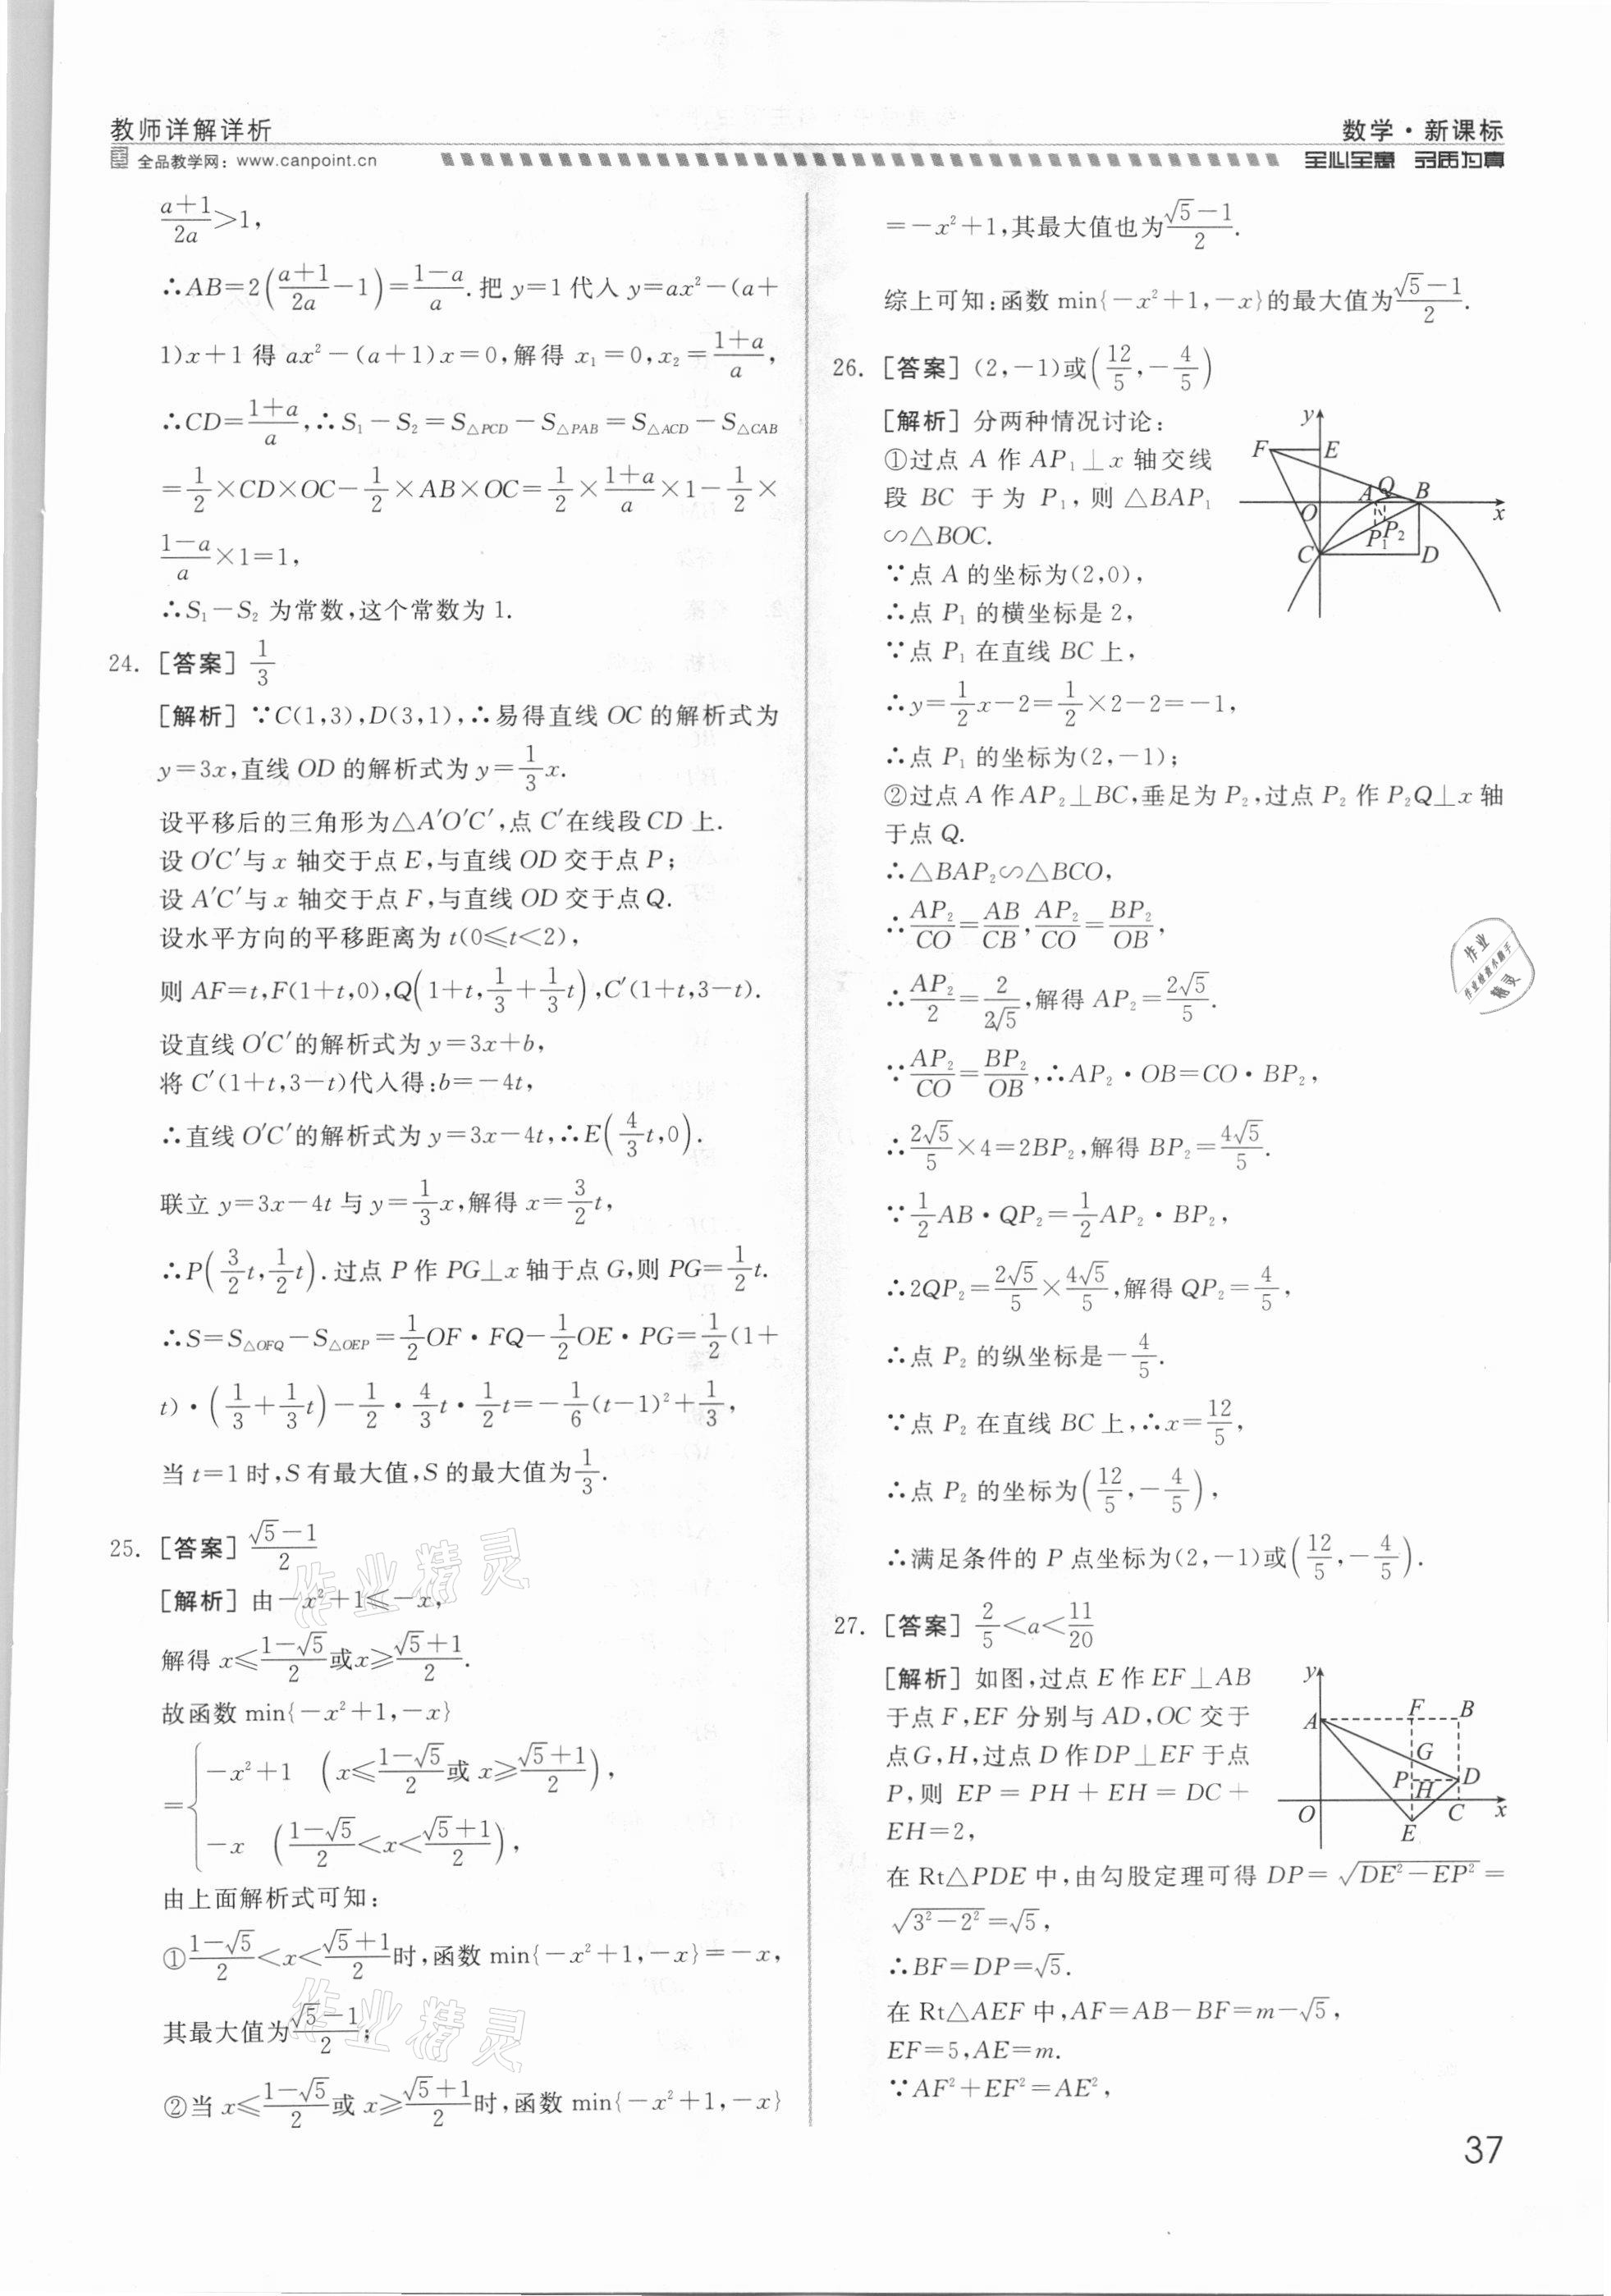 教师详解详析
全品教学网：www.canpoint.cn
数学·新课标
全心全意 字质为真
$\frac{a+1}{2a}>1$,
∴AB=2($\frac{a+1}{2a}$-1)=$\frac{1-a}{a}$.把 y=1代入 y=ax²-(a+
1)x+1 得 ax²-(a+1)x=0,解得 x₁=0,x₂=$\frac{1+a}{a}$,
∴CD=$\frac{1+a}{a}$,∴S₁-S₂=S△PCD-S△PAB=S△ACD-S△CAB
=$\frac{1}{2}$×CD×OC-$\frac{1}{2}$×AB×OC=$\frac{1}{2}$×$\frac{1+a}{a}$×1-$\frac{1}{2}$×
$\frac{1-a}{a}$×1=1,
∴S₁-S₂ 为常数,这个常数为 1.
24. [答案] $\frac{1}{3}$
[解析] ∵C(1,3),D(3,1),∴易得直线 OC 的解析式为
y=3x,直线 OD 的解析式为 y=$\frac{1}{3}$x.
设平移后的三角形为△A′O′C′,点 C′在线段 CD 上.
设 O′C′与 x 轴交于点 E,与直线 OD 交于点 P;
设 A′C′与 x 轴交于点 F,与直线 OD 交于点 Q.
设水平方向的平移距离为 t(0≤t<2),
则 AF=t,F(1+t,0),Q(1+t,$\frac{1}{3}$+$\frac{1}{3}$t),C′(1+t,3-t).
设直线 O′C′的解析式为 y=3x+b,
将 C′(1+t,3-t)代入得:b=-4t,
∴直线 O′C′的解析式为 y=3x-4t,∴E($\frac{4}{3}$t,0).
联立 y=3x-4t 与 y=$\frac{1}{3}$x,解得 x=$\frac{3}{2}$t,
∴P($\frac{3}{2}$t,$\frac{1}{2}$t).过点 P 作 PG⊥x 轴于点 G,则 PG=$\frac{1}{2}$t.
∴S=S△OFQ-S△OEP=$\frac{1}{2}$OF·FQ-$\frac{1}{2}$OE·PG=$\frac{1}{2}$(1+
t)·($\frac{1}{3}$+$\frac{1}{3}$t)-$\frac{1}{2}$·$\frac{4}{3}$t·$\frac{1}{2}$t=-$\frac{1}{6}$(t-1)²+$\frac{1}{3}$,
当 t=1 时,S 有最大值,S 的最大值为$\frac{1}{3}$.
25. [答案] $\frac{\sqrt{5}-1}{2}$
[解析] 由-x²+1≤-x,
解得 x≤$\frac{1-\sqrt{5}}{2}$或x≥$\frac{\sqrt{5}+1}{2}$.
故函数 min{-x²+1,-x}
=
-x²+1 (x≤$\frac{1-\sqrt{5}}{2}$或 x≥$\frac{\sqrt{5}+1}{2}$),
-x ($\frac{1-\sqrt{5}}{2}$<x<$\frac{\sqrt{5}+1}{2}$),
由上面解析式可知:
①$\frac{1-\sqrt{5}}{2}$<x<$\frac{\sqrt{5}+1}{2}$时,函数 min{-x²+1,-x}=-x,
其最大值为$\frac{\sqrt{5}-1}{2}$;
②当 x≤$\frac{1-\sqrt{5}}{2}$或 x≥$\frac{\sqrt{5}+1}{2}$时,函数 min{-x²+1,-x}
=-x²+1,其最大值也为$\frac{\sqrt{5}-1}{2}$.
综上可知:函数 min{-x²+1,-x}的最大值为$\frac{\sqrt{5}-1}{2}$.
26. [答案] (2,-1)或($\frac{12}{5}$,-$\frac{4}{5}$)
[解析] 分两种情况讨论:
①过点 A 作 AP₁⊥x 轴交线
段 BC 于为 P₁,则 △BAP₁
∽△BOC.
∵点 A 的坐标为(2,0),
∴点 P₁ 的横坐标是 2,
∵点 P₁ 在直线 BC 上,
∴y=$\frac{1}{2}$x-2=$\frac{1}{2}$×2-2=-1,
∴点 P₁ 的坐标为(2,-1);
②过点 A 作 AP₂⊥BC,垂足为 P₂,过点 P₂ 作 P₂Q⊥x 轴
于点 Q.
∴△BAP₂∽△BCO,
∴$\frac{AP₂}{CO}$=$\frac{AB}{CB}$,$\frac{AP₂}{CO}$=$\frac{BP₂}{OB}$,
∴$\frac{AP₂}{2}$=$\frac{2}{2\sqrt{5}}$,解得 AP₂=$\frac{2\sqrt{5}}{5}$.
∵$\frac{AP₂}{CO}$=$\frac{BP₂}{OB}$,∴AP₂·OB=CO·BP₂,
∴$\frac{2\sqrt{5}}{5}$×4=2BP₂,解得 BP₂=$\frac{4\sqrt{5}}{5}$.
∵$\frac{1}{2}$AB·QP₂=$\frac{1}{2}$AP₂·BP₂,
∴2QP₂=$\frac{2\sqrt{5}}{5}$×$\frac{4\sqrt{5}}{5}$,解得 QP₂=$\frac{4}{5}$,
∴点 P₂ 的纵坐标是-$\frac{4}{5}$.
∵点 P₂ 在直线 BC 上,∴x=$\frac{12}{5}$,
∴点 P₂ 的坐标为($\frac{12}{5}$,-$\frac{4}{5}$),
∴满足条件的 P 点坐标为(2,-1)或($\frac{12}{5}$,-$\frac{4}{5}$).
y
F E
A Q B
O x
P₁ P₂
C D
27. [答案] $\frac{2}{5}$<a<$\frac{11}{20}$
[解析] 如图,过点 E 作 EF⊥AB
于点 F,EF 分别与 AD,OC 交于
点G,H,过点 D 作 DP⊥EF 于点
P,则 EP=PH+EH=DC+
EH=2,
在 Rt△PDE 中,由勾股定理可得 DP=$\sqrt{DE²-EP²}$=
$\sqrt{3²-2²}$=$\sqrt{5}$,
∴BF=DP=$\sqrt{5}$.
在 Rt△AEF 中,AF=AB-BF=m-$\sqrt{5}$,
EF=5,AE=m.
∵AF²+EF²=AE²,
y
A F B
G
P D
H
O C x
E
作业
作业检查小助手
精灵
作业精灵
作业精灵
37